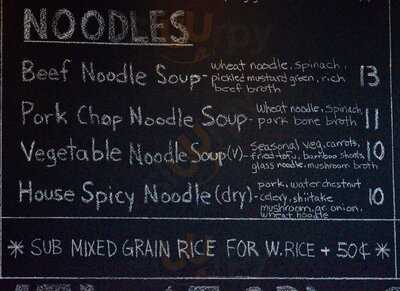 NOODLES
Beef Noodle Soup - wheat noodle, spinach, 13
pickled mustard green, rich
beef broth
Pork Chop Noodle Soup - wheat noodle, spinach, 11
pork bone broth
Vegetable Noodle Soup (v) - seasonal veg, carrots, 10
fried tofu, bamboo shoots,
glass noodle, mushroom broth
House Spicy Noodle (dry) - pork, water chestnut 10
celery, shiitake
mushroom, gr. onion,
wheat noodle
* SUB MIXED GRAIN RICE FOR W. RICE + 50¢ *